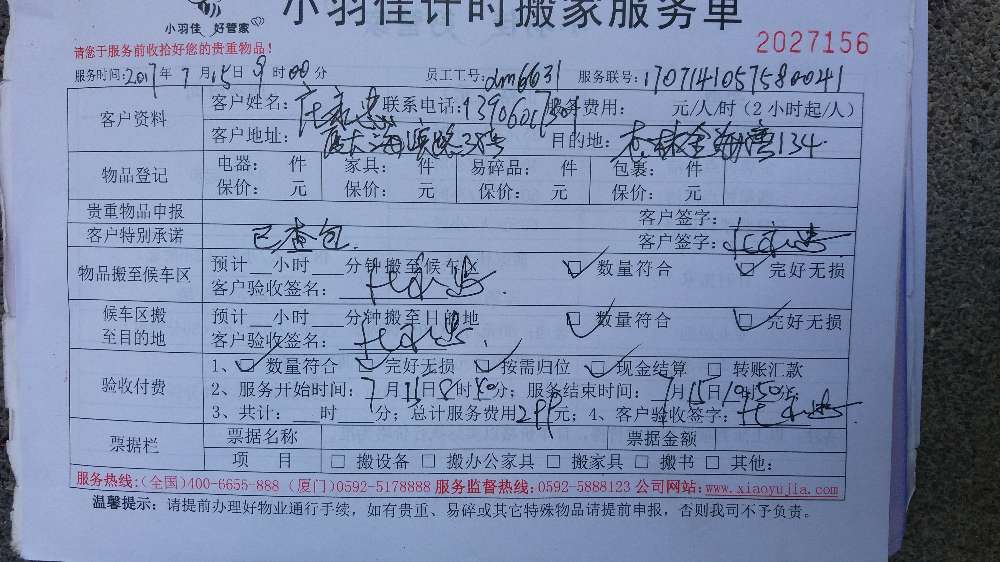 小羽佳计时搬家服务单
小羽佳 好管家
请您于服务前收拾好您的贵重物品！
2027156
服务时间:2017年7月15日9时00分 员工工号:dm6631 服务联号:17071410575800041
客户资料
客户姓名: 联系电话: 服务费用: 元/人/时（2小时起/人）
客户地址: 目的地: 杏林金海湾134
物品登记
电器: 件 家具: 件 易碎品: 件 包裹: 件
保价: 元 保价: 元 保价: 元 保价: 元
贵重物品申报 客户签字:
客户特别承诺 已查包. 客户签字:
物品搬至候车区
预计___小时___分钟搬至候车区 数量符合 完好无损
客户验收签名:
候车区搬至目的地
预计___小时___分钟搬至目的地 数量符合 完好无损
客户验收签名:
验收付费
1、 数量符合 完好无损 按需归位 现金结算 □ 转账汇款
2、服务开始时间: 7月15日8时40分; 服务结束时间: 7月15日10时50分
3、共计:___时___分; 总计服务费用 元; 4、客户验收签字:
票据栏
票据名称 票据金额
项 目 □ 搬设备 □ 搬办公家具 □ 搬家具 □ 搬书 □ 其他:
服务热线:(全国)400-6655-888 (厦门)0592-5178888 服务监督热线:0592-5888123 公司网站:www.xiaoyujia.com
温馨提示: 请提前办理好物业通行手续，如有贵重、易碎或其它特殊物品请提前申报，否则我司不予负责。